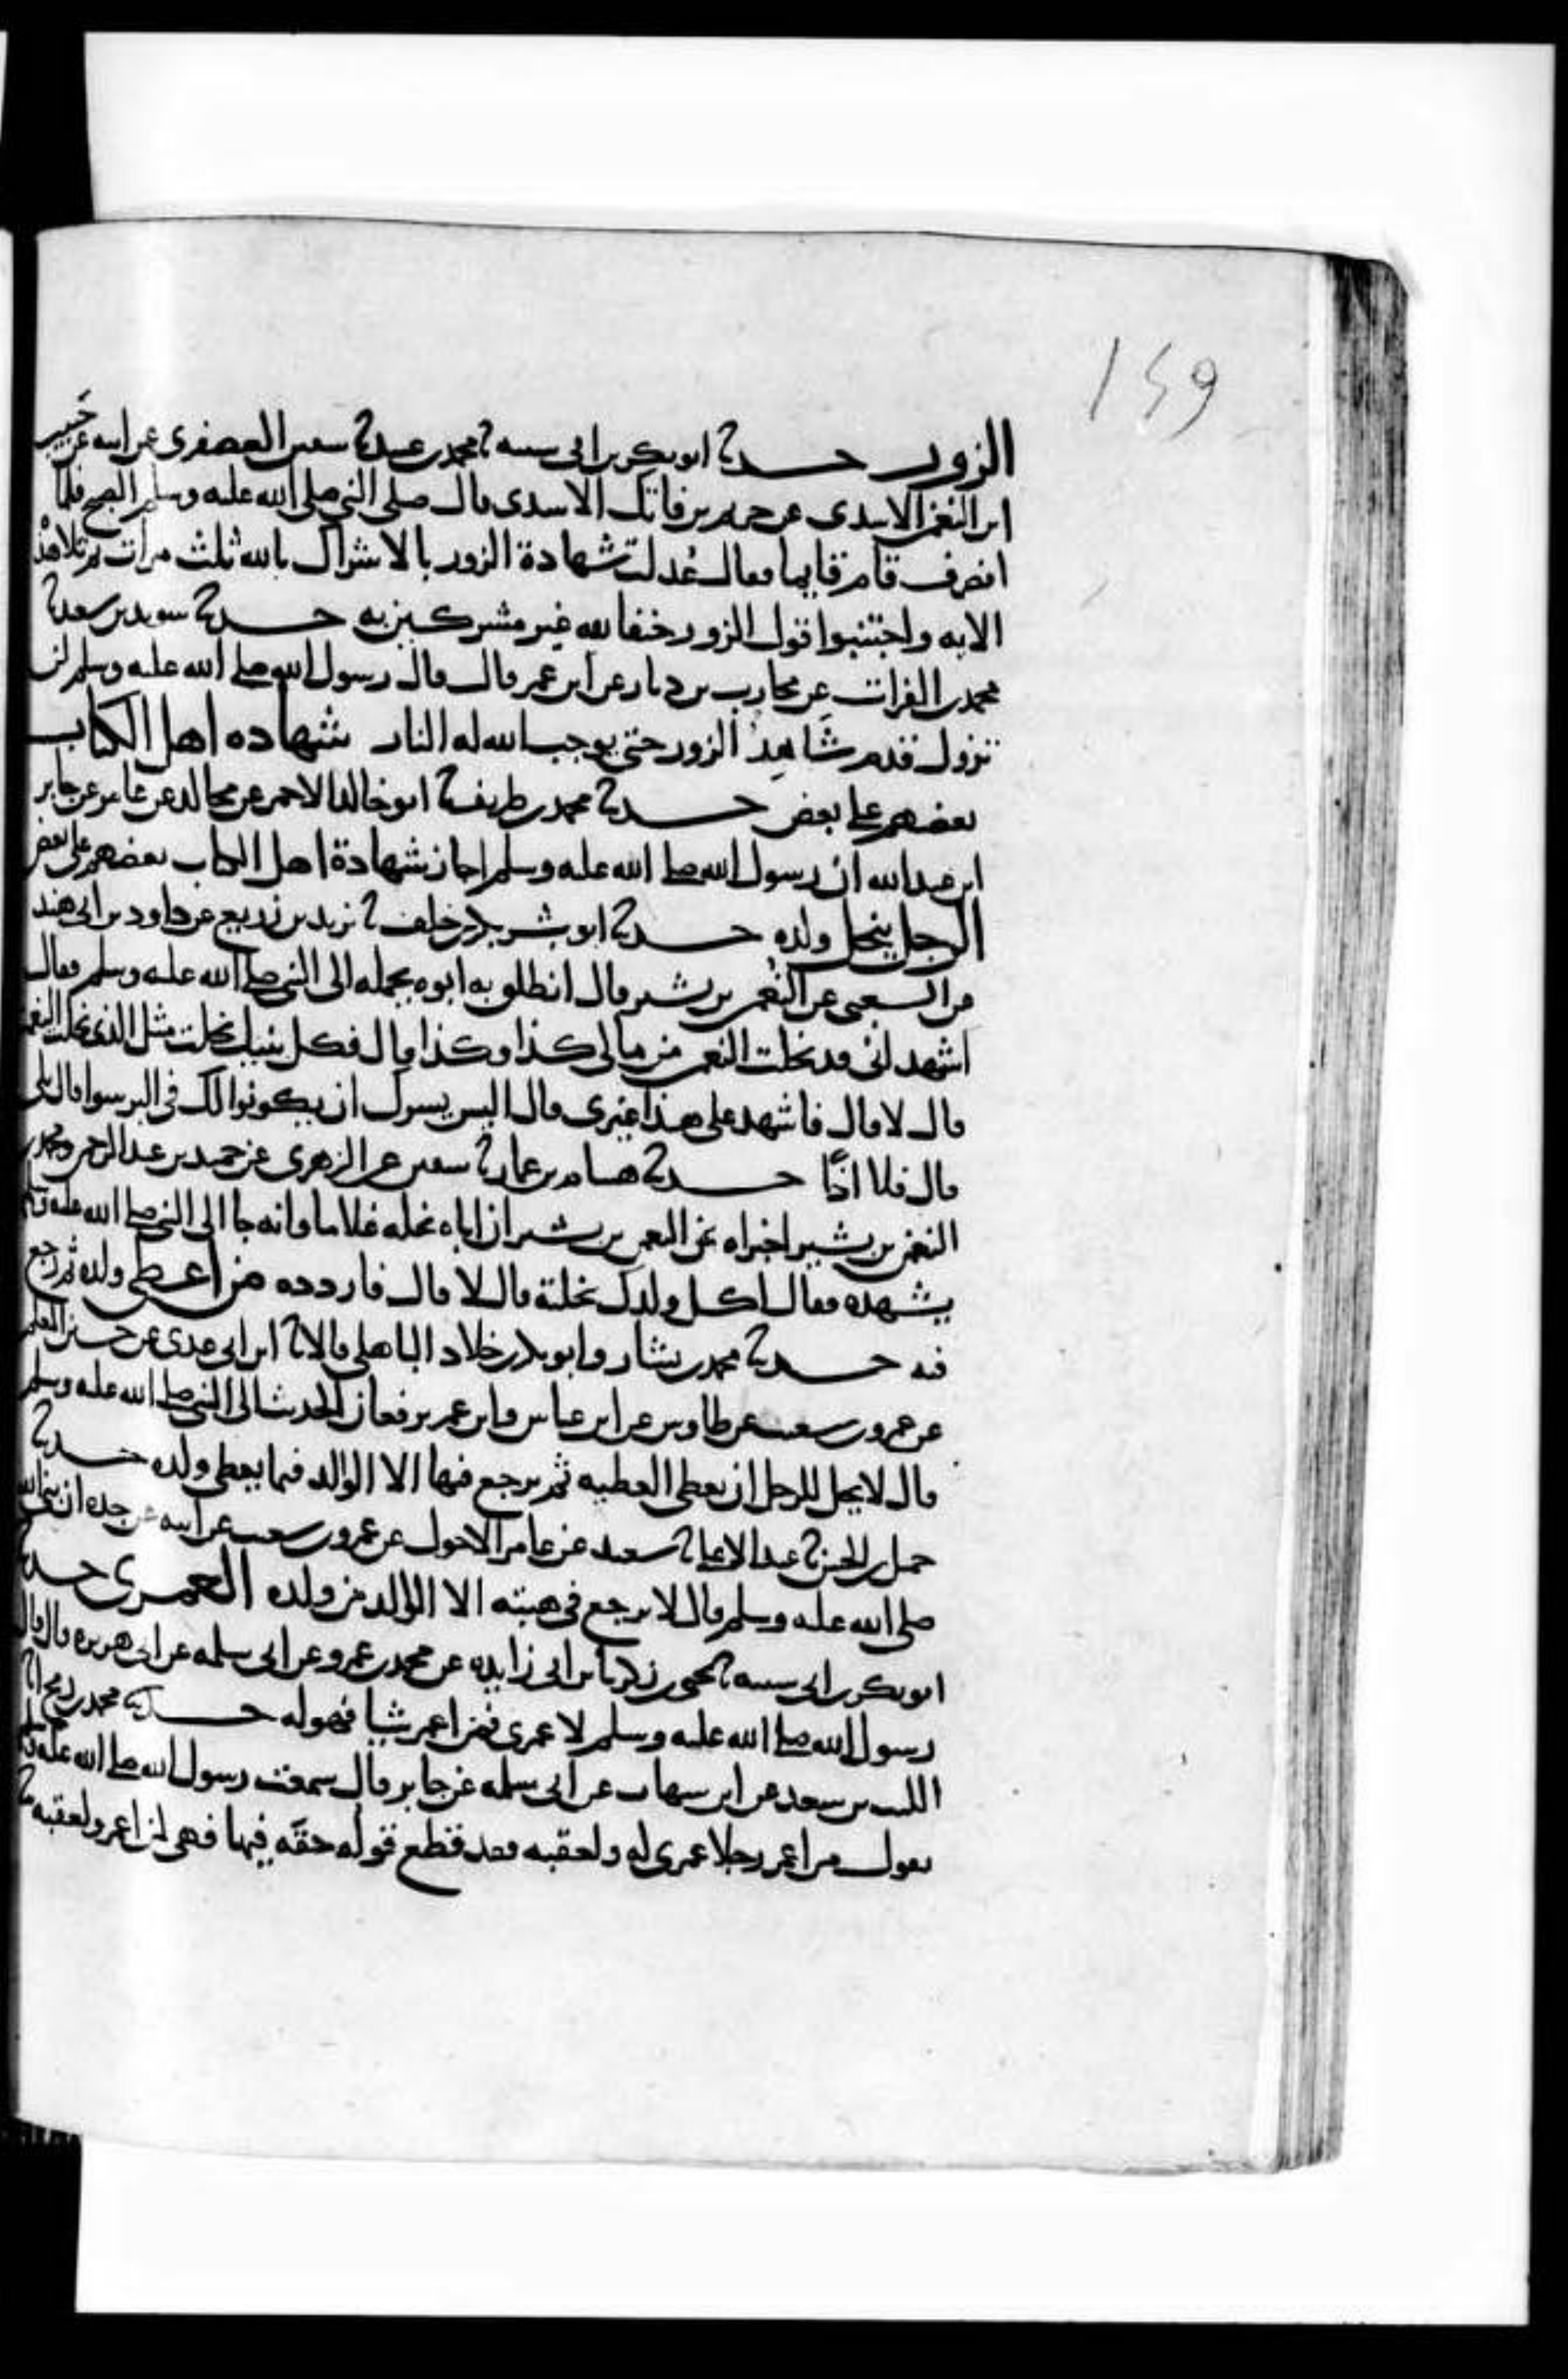 149
الزور حدثنا ابو بكر بن ابى شيبه نا محمد بن عبيد نا سفين العصفرى عن ابيه عن حبيب
ابن النعمن الاسدى عن خريم بن فاتك الاسدى قال صلى النبى صلى الله عليه وسلم الصبح فلما
انصرف قام قايما فقال عُدلت شهادة الزور بالاشراك بالله ثلث مرات ثم تلا هذه
الايه واجتنبوا قول الزور حنفا لله غير مشركين به حدثنا سويد بن سعيد نا
محمد بن الفرات عن محارب بن دثار عن ابن عمر قال قال رسول الله صلى الله عليه وسلم لن
تزول قدم شَاهِدُ الزور حتى يوجب الله له النار شهاده اهل الكتاب
بعضهم على بعض حدثنا محمد بن طريف نا ابو خالد الاحمر عن مجالد عن عامر عن جابر
ابن عبد الله ان رسول الله صلى الله عليه وسلم اجاز شهادة اهل الكتاب بعضهم على بعض
الرجل ينحل ولده حدثنا ابو بشر بكر بن خلف نا يزيد بن زريع عن داود بن ابى هند
عن الشعبى عن النُعمن بن بشير قال انطلق به ابوه يحمله الى النبى صلى الله عليه وسلم فقال
اشهد انى قد نحلت النعمن من مالى كذا وكذا قال فكل بنيك نحلت مثل الذى نحلت النعمن
قال لا قال فاشهد على هذا غيرى قال اليس يسرك ان يكونوا لك فى البر سوا قال بلى
قال فلا اذًا حدثنا هشام بن عمار نا سفين عن الزهرى عن حميد بن عبد الرحمن ومحمد بن
النعمن بن بشير اخبراه عن النعمن بن بشير ان اباه نحله غلاما وانه جا الى النبى صلى الله عليه وسلم
يشهده فقال اكل ولدك نحلته قال لا قال فاردده من اعطى ولده ثم رجع
فيه حدثنا محمد بن بشار وابو بكر بن خلاد الباهلى قالا نا ابن ابى عدى عن حسين المعلم
عن عمرو بن شعيب عن طاوس عن ابن عباس وابن عمر يرفعان الحديث الى النبى صلى الله عليه وسلم
قال لا يحل للرجل ان يعطى العطيه ثم يرجع فيها الا الوالد فيما يعطى ولده حدثنا
جميل بن الحسن نا عبد الاعلى نا سعيد عن عامر الاحول عن عمرو بن شعيب عن ابيه عن جده ان نبى الله
صلى الله عليه وسلم قال لا يرجع فى هبته الا الوالد من ولده العمرى حدثنا
ابو بكر بن ابى شيبه نا يحيى بن زكريا بن ابى زايده عن محمد بن عمرو عن ابى سلمه عن ابى هريره قال قال
رسول الله صلى الله عليه وسلم لا عمرى فمن اعمر شيا فهو له حدثنا محمد بن رمح انا
الليث بن سعد عن ابن شهاب عن ابى سلمه عن جابر قال سمعت رسول الله صلى الله عليه وسلم
يقول من اعمر رجلا عمرى له ولعقبه فقد قطع قوله حقه فيها فهى لمن اعمر ولعقبه نا